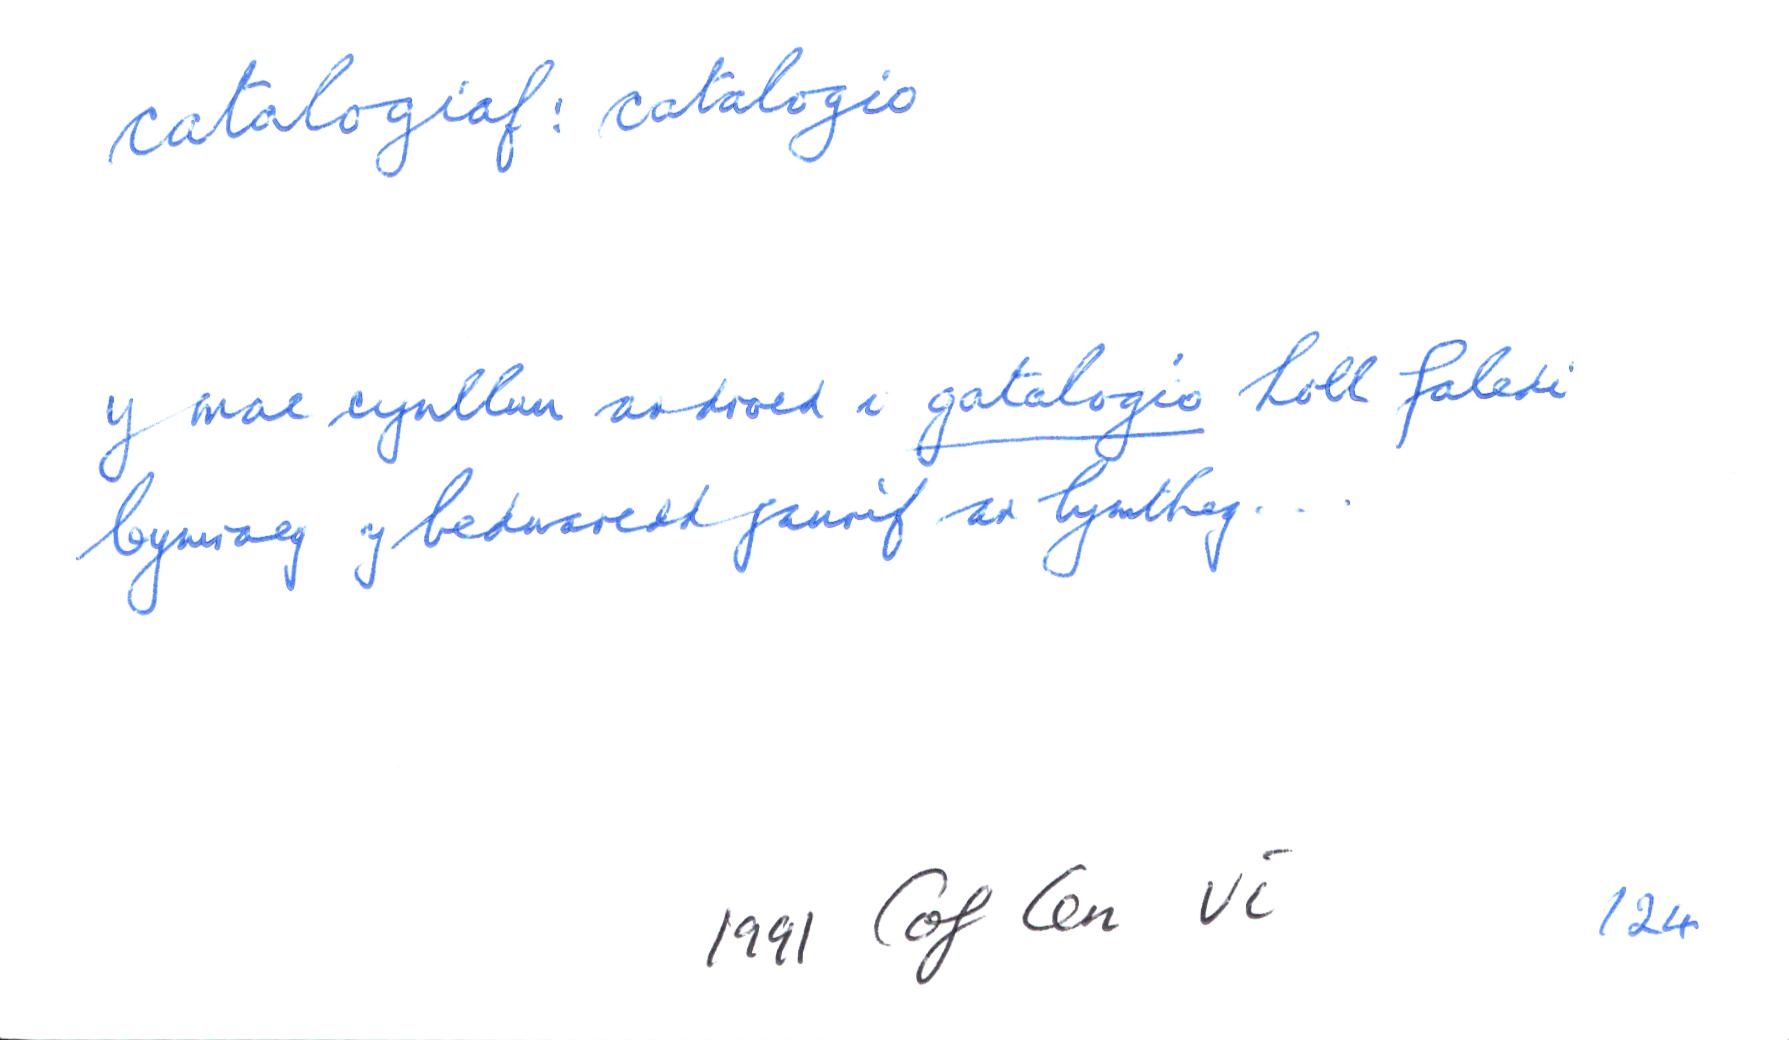 catalogiaf: catalogio
y mae cynllun ar droed i gatalogio holl faledi
Cymraeg y bedwaredd ganrif ar bymtheg...
1991 Cof Cen VI 124